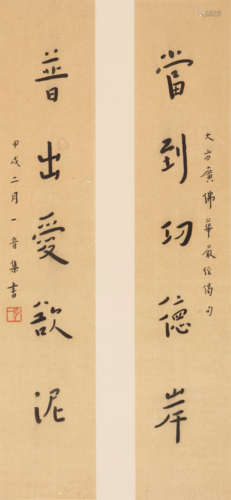 大方廣佛華嚴經偈句
當到功德岸
普出愛欲泥
甲戌二月一音集書